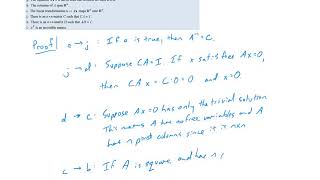 h. The columns of A span Rⁿ.
i. The linear transformation x ↦ Ax maps Rⁿ onto Rⁿ.
j. There is an n×n matrix C such that CA = I.
k. There is an n×n matrix D such that AD = I.
l. Aᵀ is an invertible matrix.
Proof
a → j : If a is true, then A⁻¹ = C.
j → d : Suppose CA = I. If x satisfies Ax = 0,
then CAx = C·0 = 0 and x = 0
d → c : Suppose Ax = 0 has only the trivial solution
This means A has no free variables and A
has n pivot columns since it is n×n
c → b : If A is square and has n,